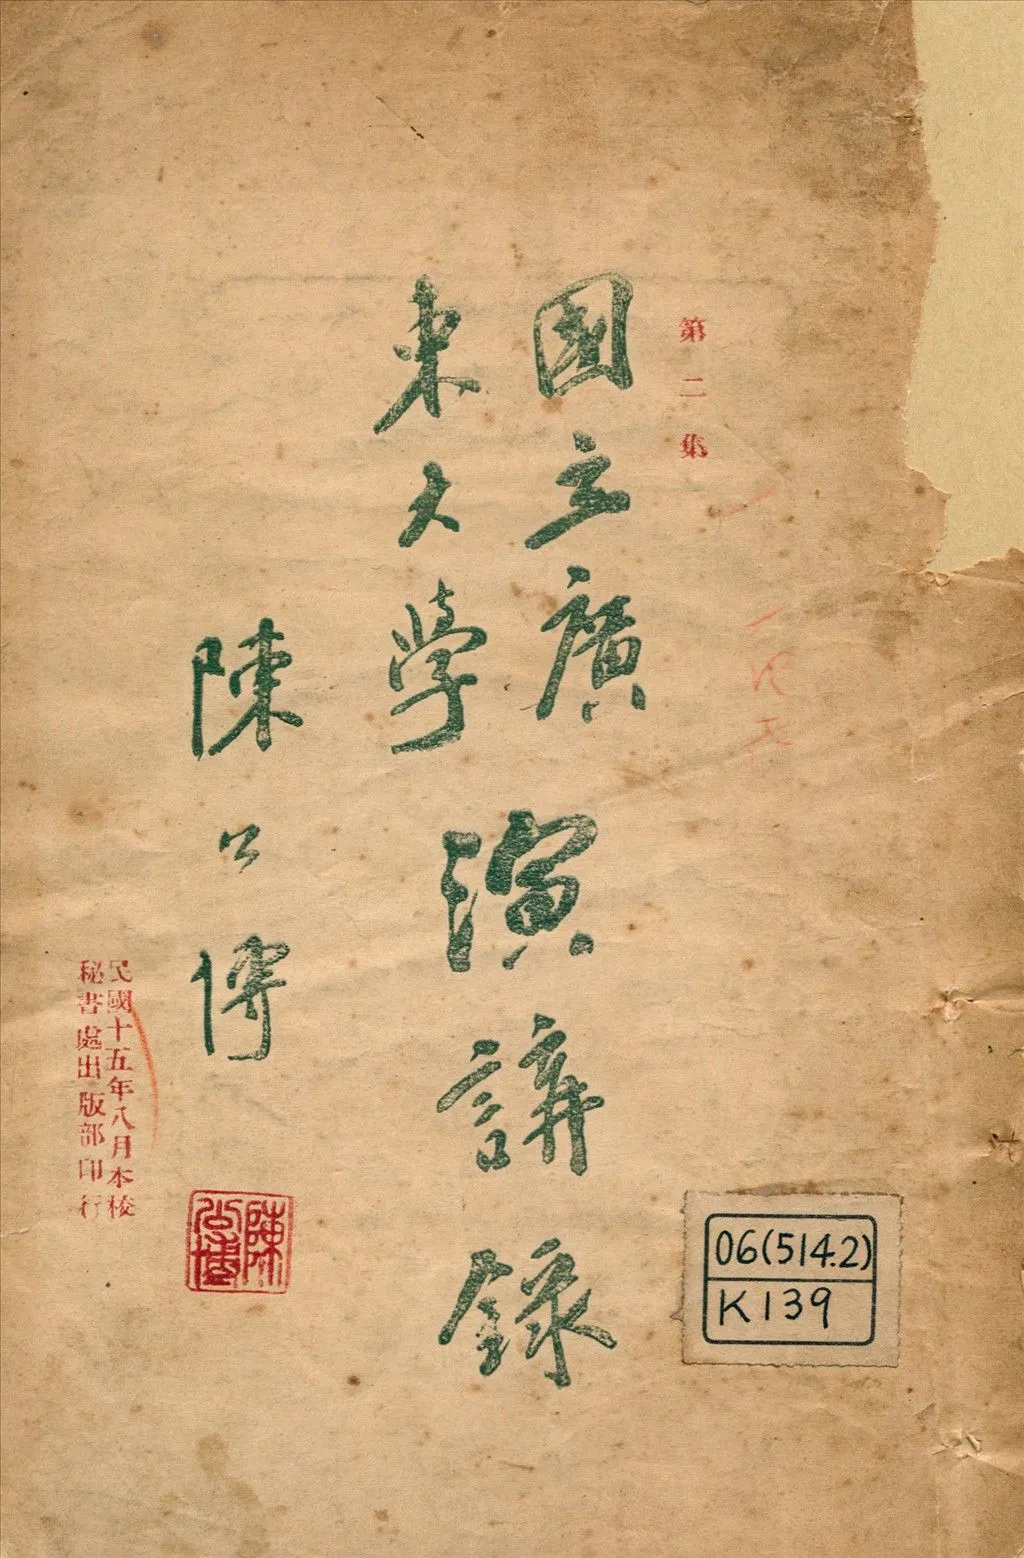 第二集
國立廣
東大學
演講錄
陳公博
民國十五年八月本校
秘書處出版部印行
陳公博
06(514.2)
K139